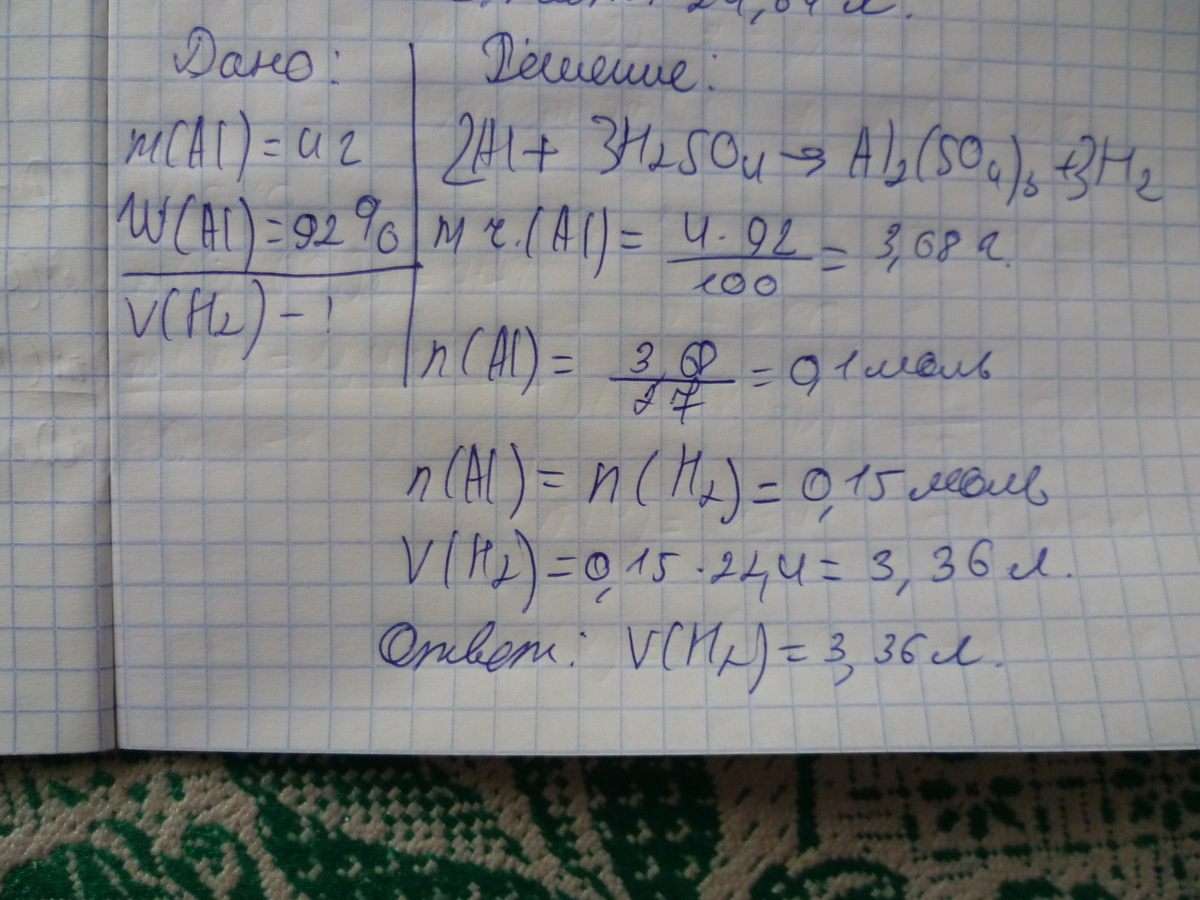 24,64 л.
Дано:
m(Al) = 4 г
W(Al) = 92 %
V(H₂) - ?
Решение:
2Al + 3H₂SO₄ → Al₂(SO₄)₃ + 3H₂
m ч. (Al) = 4 · 92 / 100 = 3,68 г.
n(Al) = 3,68 / 27 = 0,1 моль
n(Al) = n(H₂) = 0,15 моль
V(H₂) = 0,15 · 22,4 = 3,36 л.
Ответ: V(H₂) = 3,36 л.